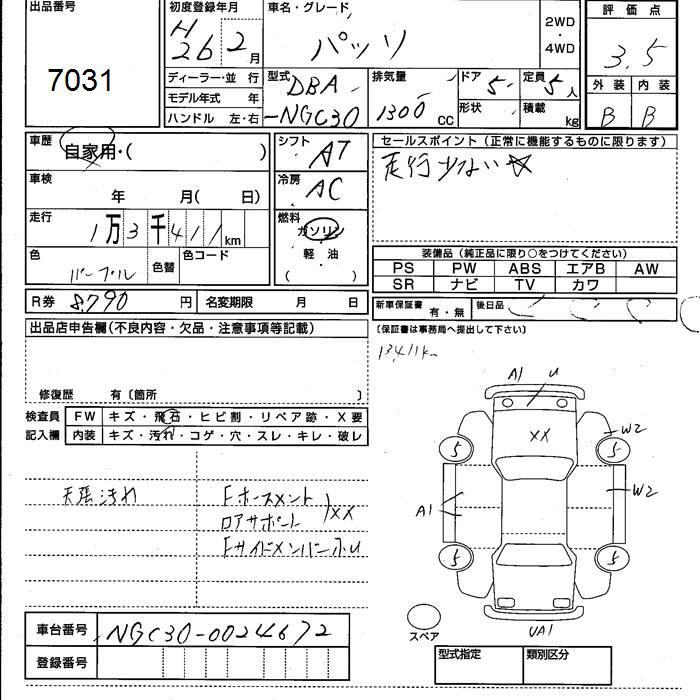 出品番号
7031
初度登録年月
H
26 2 月
ディーラー・並 行
モデル年式 年
ハンドル 左・右
車名・グレード
パッソ
2WD
・
4WD
型式 DBA
-NGC30
排気量
1300 cc
ドア 5
形状
定員 5 人
積載 kg
評価点
3.5
外装 内装
B B
車歴
自家用・( )
車検
年 月( 日)
走行
1万3千411km
色
パープル
色替
色コード
シフト
AT
冷房
AC
燃料
ガソリン
・
軽・油
( )
セールスポイント (正常に機能するものに限ります)
走行少ない☆
装備品 (純正品に限り○をつけてください)
PS PW ABS エアB AW
SR ナビ TV カワ
R券 8,790 円 名変期限 月 日
新車保証書 有・無 後日品
(保証書は事務局へ提出して下さい)
13411km
出品店申告欄 (不良内容・欠品・注意事項等記載)
修復歴 有〔箇所 〕
検査員 FW キズ・飛石・ヒビ割・リペア跡・X要
記入欄 内装 キズ・汚れ・コゲ・穴・スレ・キレ・破レ
天張汚れ
Fホースメント
ロアサポート XX
FサイドメンバーふU
A1 U
XX
W2
5 5
W2
A1
5 5
スペア
UA1
車台番号 NGC30-0024672
登録番号
型式指定 類別区分